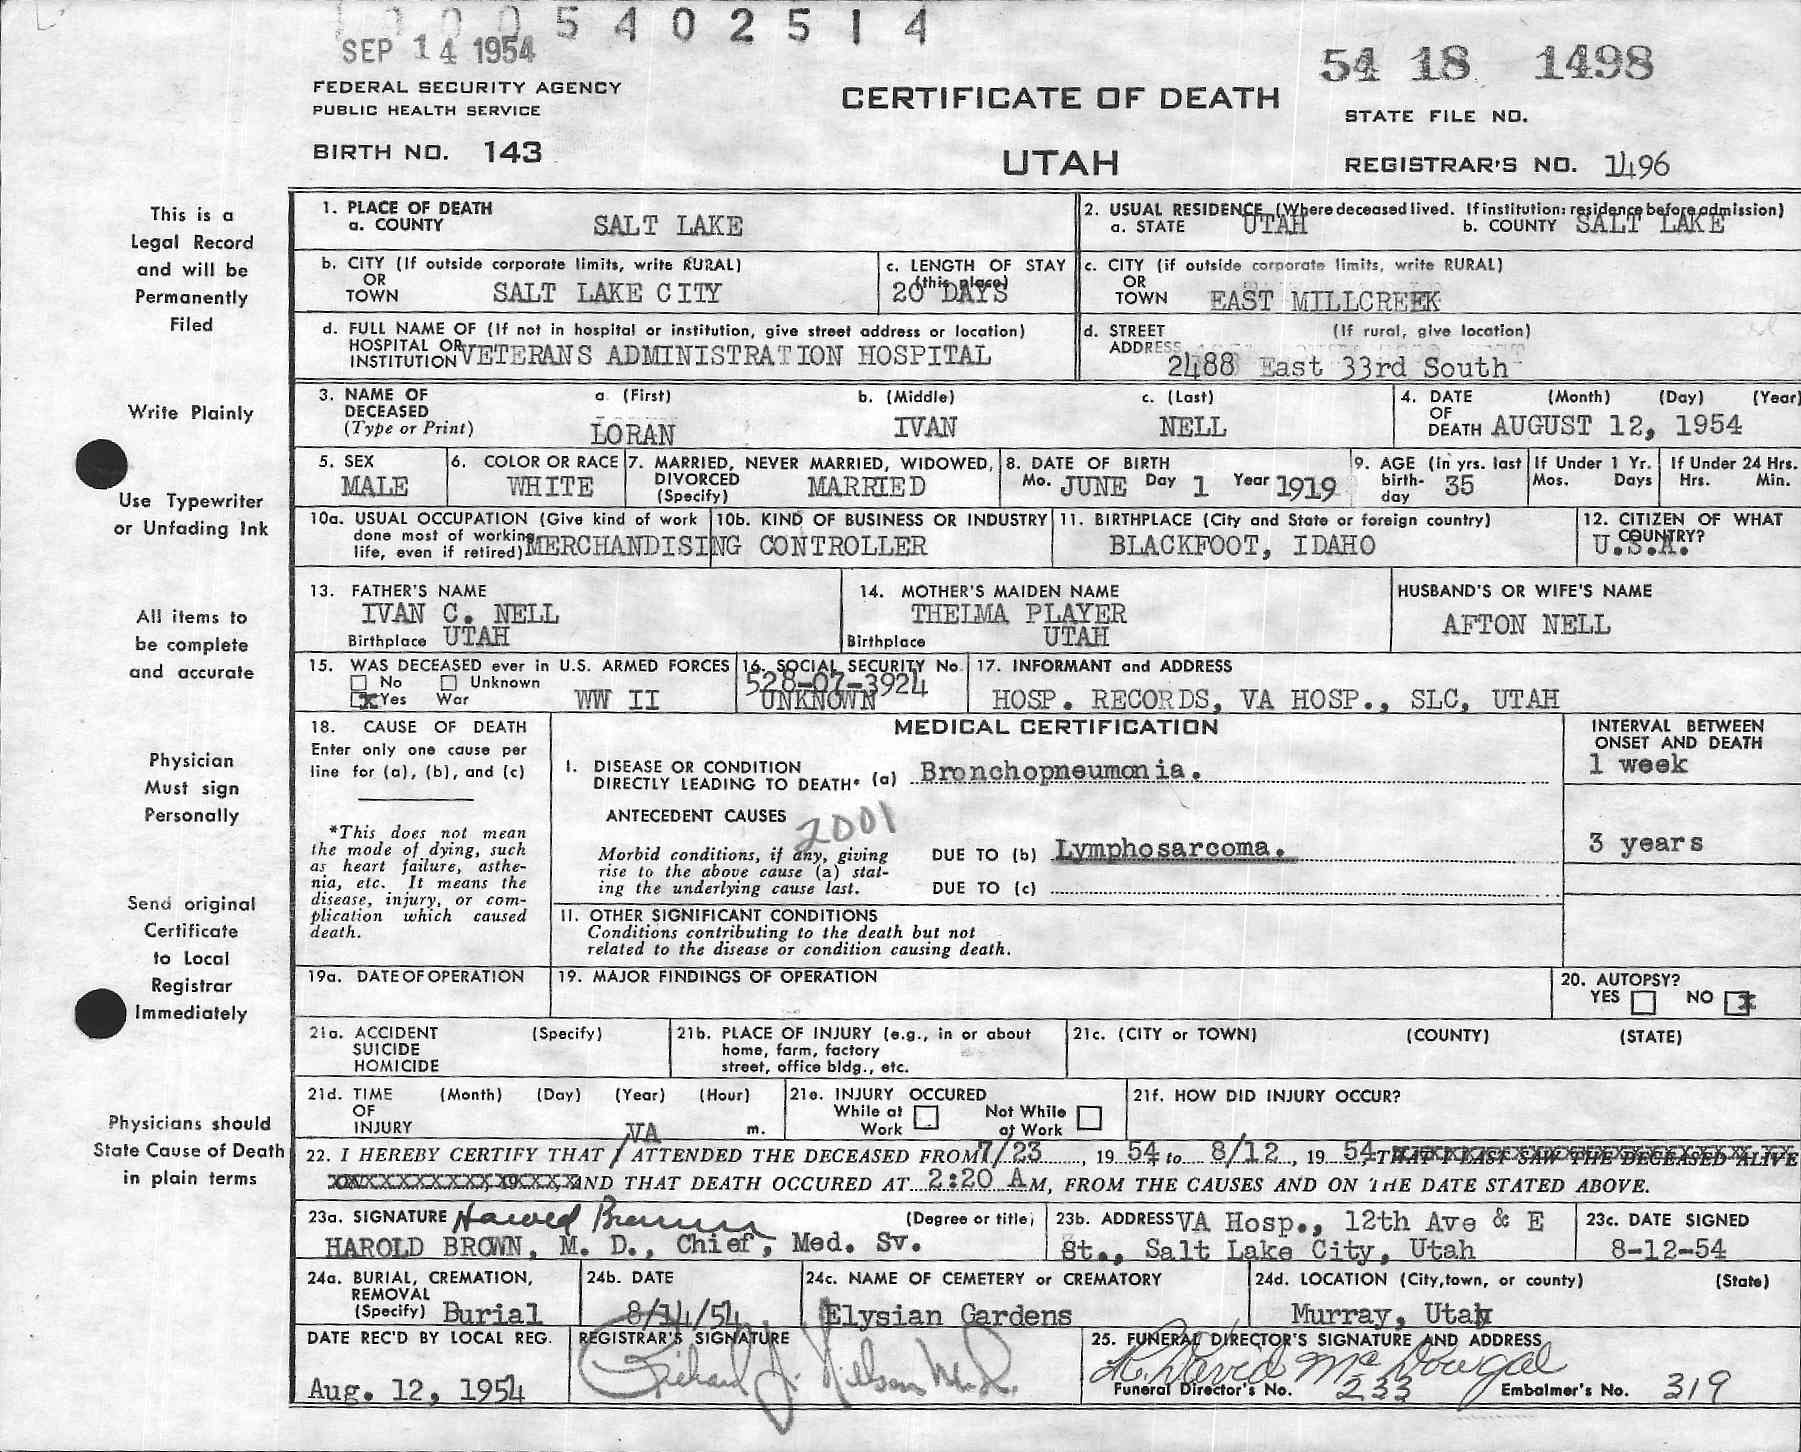 0 0 0 5 4 0 2 5 1 4
SEP 14 1954
54 18 1498
FEDERAL SECURITY AGENCY
PUBLIC HEALTH SERVICE
CERTIFICATE OF DEATH
STATE FILE NO.
BIRTH NO. 143
UTAH
REGISTRAR'S NO. 1496
This is a
Legal Record
and will be
Permanently
Filed
Write Plainly
Use Typewriter
or Unfading Ink
All items to
be complete
and accurate
Physician
Must sign
Personally
Send original
Certificate
to Local
Registrar
Immediately
Physicians should
State Cause of Death
in plain terms
1. PLACE OF DEATH
a. COUNTY SALT LAKE
2. USUAL RESIDENCE (Where deceased lived. If institution: residence before admission)
a. STATE UTAH b. COUNTY SALT LAKE
b. CITY (If outside corporate limits, write RURAL)
OR
TOWN SALT LAKE CITY
c. LENGTH OF STAY
(this place)
20 DAYS
c. CITY (if outside corporate limits, write RURAL)
OR
TOWN EAST MILLCREEK
d. FULL NAME OF (If not in hospital or institution, give street address or location)
HOSPITAL OR
INSTITUTION VETERANS ADMINISTRATION HOSPITAL
d. STREET (If rural, give location)
ADDRESS
2488 East 33rd South
3. NAME OF
DECEASED
(Type or Print)
a (First) b. (Middle) c. (Last)
LORAN IVAN NELL
4. DATE (Month) (Day) (Year)
OF
DEATH AUGUST 12, 1954
5. SEX
MALE
6. COLOR OR RACE
WHITE
7. MARRIED, NEVER MARRIED, WIDOWED,
DIVORCED
(Specify) MARRIED
8. DATE OF BIRTH
Mo. JUNE Day 1 Year 1919
9. AGE (In yrs. last
birth-
day 35
If Under 1 Yr.
Mos. Days
If Under 24 Hrs.
Hrs. Min.
10a. USUAL OCCUPATION (Give kind of work
done most of working
life, even if retired) MERCHANDISING CONTROLLER
10b. KIND OF BUSINESS OR INDUSTRY
11. BIRTHPLACE (City and State or foreign country)
BLACKFOOT, IDAHO
12. CITIZEN OF WHAT
COUNTRY?
U.S.A.
13. FATHER'S NAME
IVAN C. NELL
Birthplace UTAH
14. MOTHER'S MAIDEN NAME
THELMA PLAYER
Birthplace UTAH
HUSBAND'S OR WIFE'S NAME
AFTON NELL
15. WAS DECEASED ever in U.S. ARMED FORCES
No Unknown
x Yes War WW II
16. SOCIAL SECURITY No.
528-07-3924
UNKNOWN
17. INFORMANT and ADDRESS
HOSP. RECORDS, VA HOSP., SLC, UTAH
18. CAUSE OF DEATH
Enter only one cause per
line for (a), (b), and (c)
*This does not mean
the mode of dying, such
as heart failure, asthe-
nia, etc. It means the
disease, injury, or com-
plication which caused
death.
MEDICAL CERTIFICATION
INTERVAL BETWEEN
ONSET AND DEATH
I. DISEASE OR CONDITION
DIRECTLY LEADING TO DEATH* (a) Bronchopneumonia.
1 week
ANTECEDENT CAUSES
2001
Morbid conditions, if any, giving
rise to the above cause (a) stat-
ing the underlying cause last.
DUE TO (b) Lymphosarcoma.
3 years
DUE TO (c)
II. OTHER SIGNIFICANT CONDITIONS
Conditions contributing to the death but not
related to the disease or condition causing death.
19a. DATE OF OPERATION
19. MAJOR FINDINGS OF OPERATION
20. AUTOPSY?
YES NO x
21a. ACCIDENT (Specify)
SUICIDE
HOMICIDE
21b. PLACE OF INJURY (e.g., in or about
home, farm, factory
street, office bldg., etc.
21c. (CITY or TOWN) (COUNTY) (STATE)
21d. TIME (Month) (Day) (Year) (Hour)
OF
INJURY m.
21e. INJURY OCCURED
While at Work Not While at Work
21f. HOW DID INJURY OCCUR?
VA
22. I HEREBY CERTIFY THAT / ATTENDED THE DECEASED FROM 7/23, 19 54 to 8/12, 19 54, THAT I LAST SAW THE DECEASED ALIVE
AND THAT DEATH OCCURED AT 2:20 A M, FROM THE CAUSES AND ON THE DATE STATED ABOVE.
23a. SIGNATURE Harold Brown (Degree or title)
HAROLD BROWN, M. D., Chief, Med. Sv.
23b. ADDRESS VA Hosp., 12th Ave & E
St., Salt Lake City, Utah
23c. DATE SIGNED
8-12-54
24a. BURIAL, CREMATION,
REMOVAL
(Specify) Burial
24b. DATE
8/14/54
24c. NAME OF CEMETERY or CREMATORY
Elysian Gardens
24d. LOCATION (City,town, or county) (State)
Murray, Utah
DATE REC'D BY LOCAL REG.
Aug. 12, 1954
REGISTRAR'S SIGNATURE
Richard J. Nielson M.D.
25. FUNERAL DIRECTOR'S SIGNATURE AND ADDRESS
R. David McDougal
Funeral Director's No. 233 Embalmer's No. 319